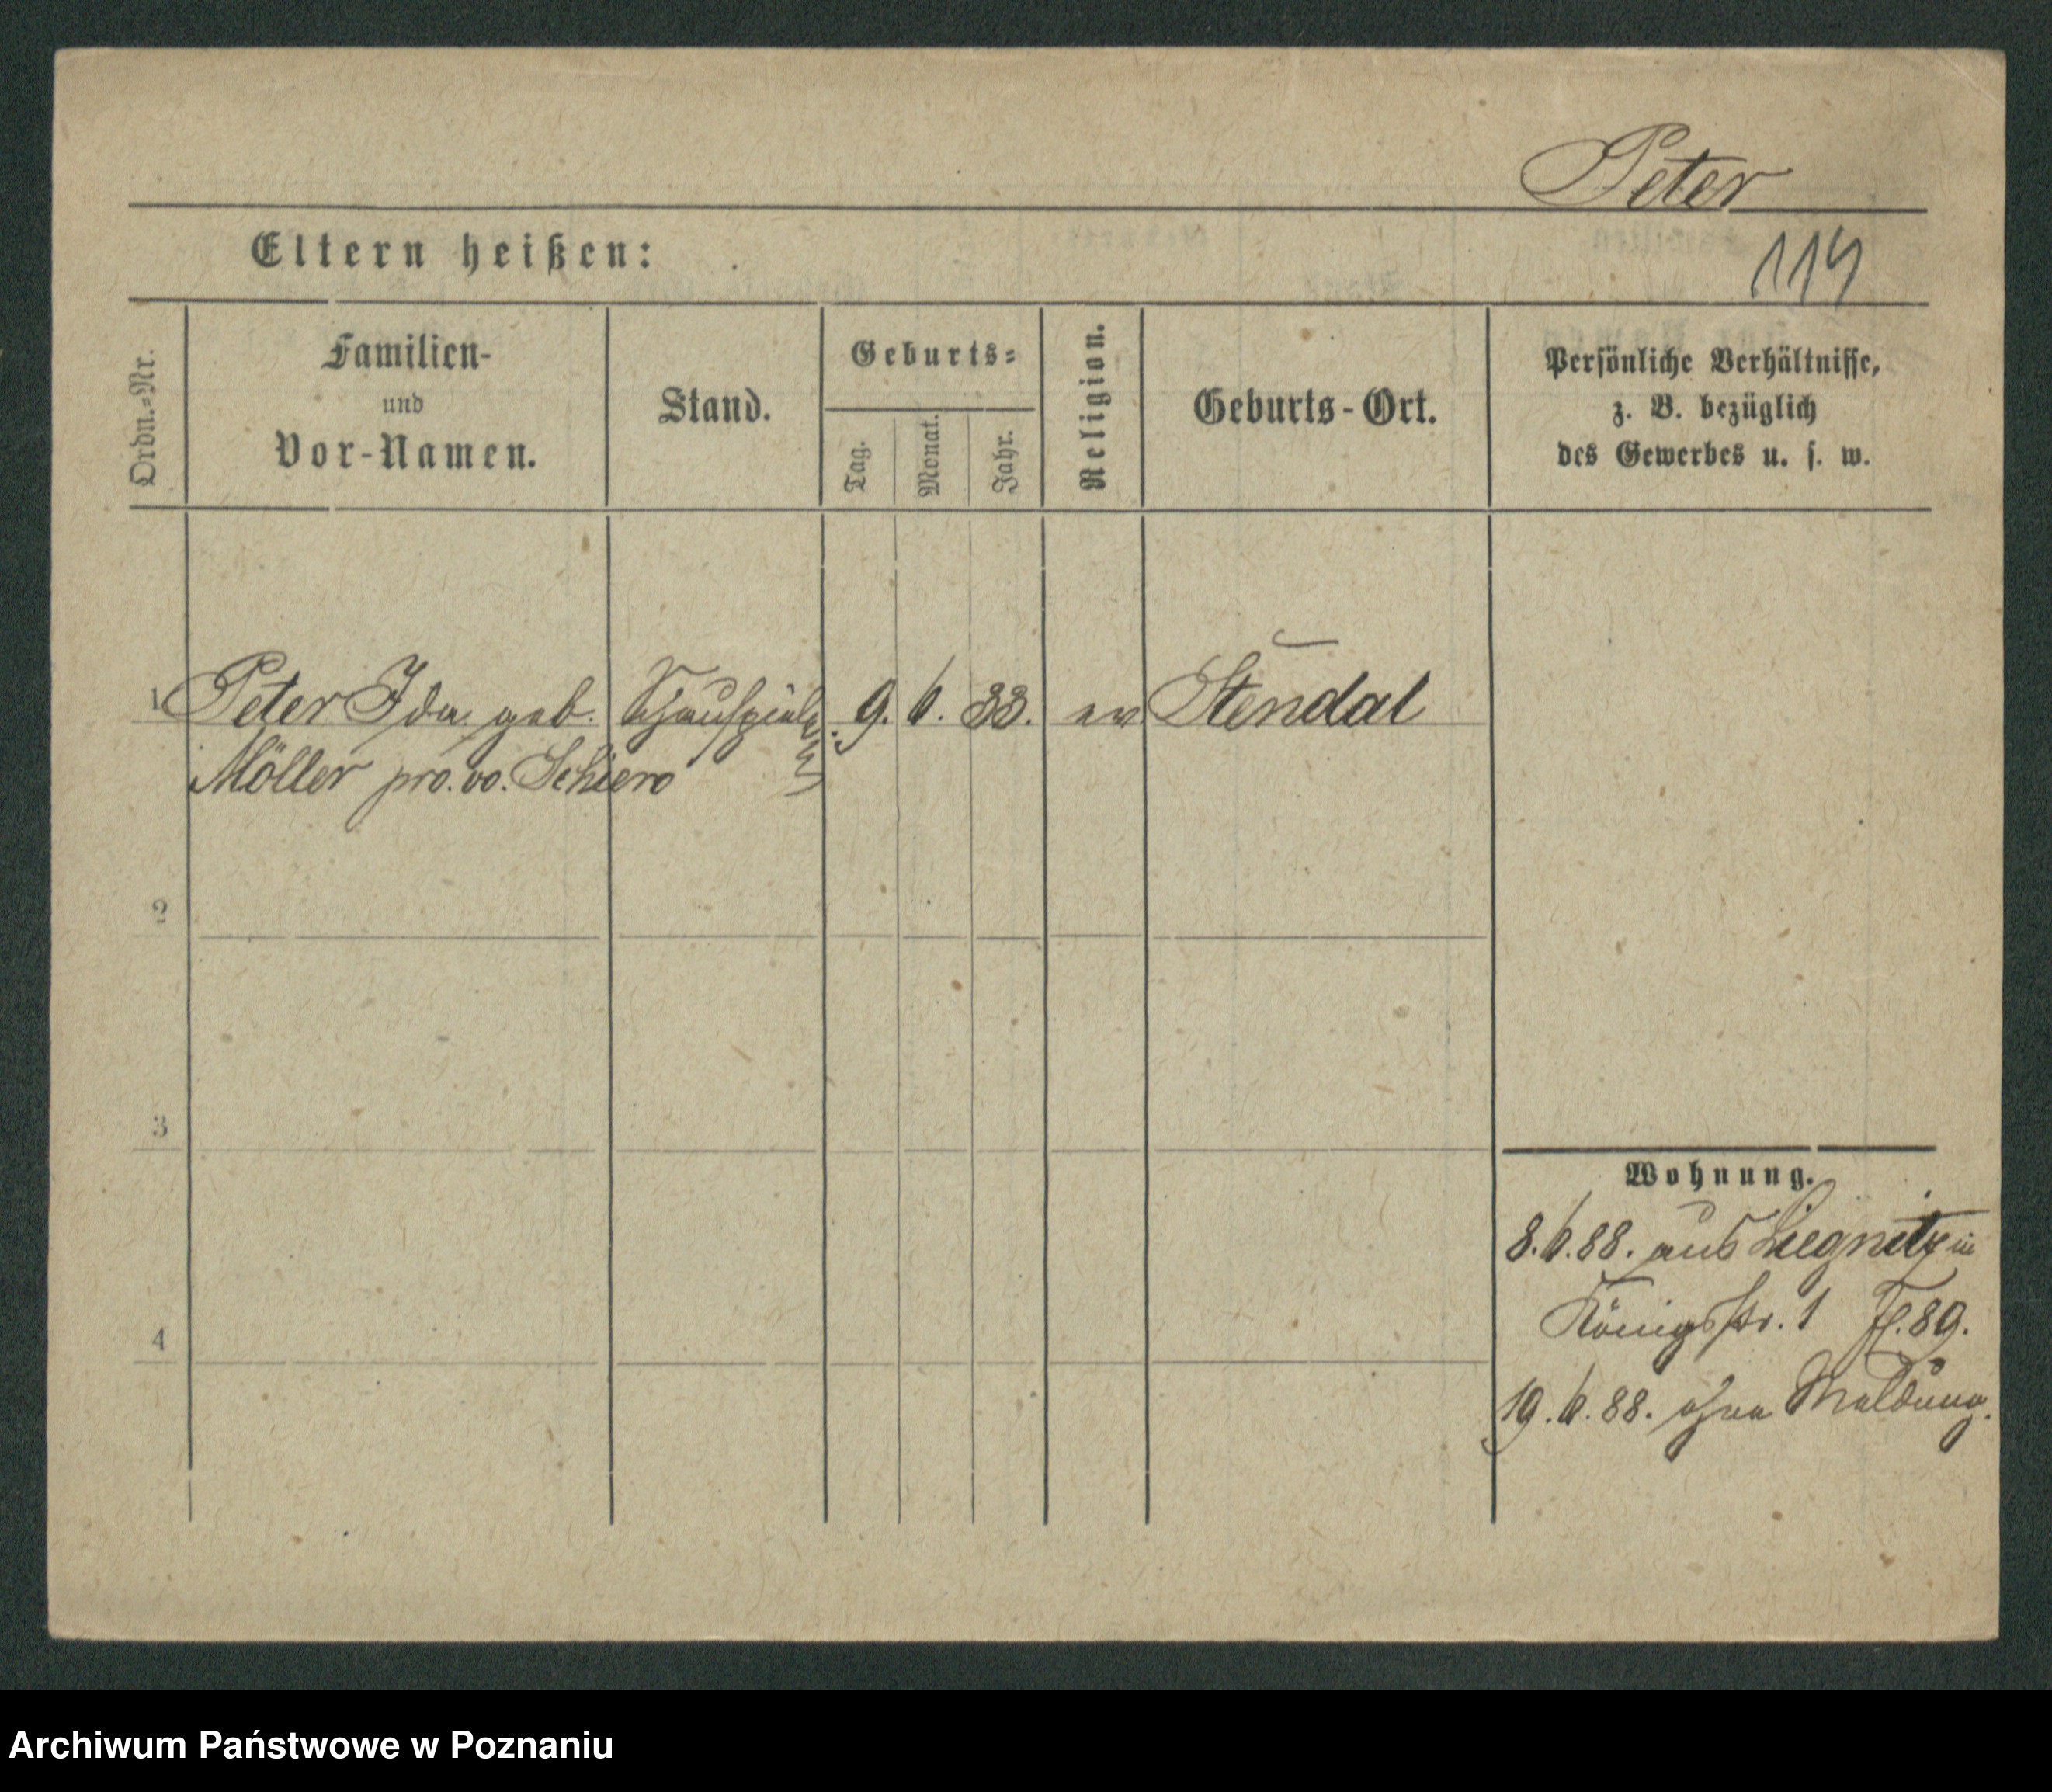 Peter
Eltern heißen:
114
Ordn.-Nr.
Familien-
und
Vor-Namen.
Stand.
Geburts-
Tag.
Monat.
Jahr.
Religion.
Geburts-Ort.
Persönliche Verhältnisse,
z. B. bezüglich
des Gewerbes u. s. w.
1 Peter Ida geb. 9. 6. 33. ev Stendal
Möller pro. vo. Schiero
2
3
4
Wohnung.
8.6.88. aus Liegnitz in
Königstr. 1 89.
19.6.88. ohne Meldung.
Archiwum Państwowe w Poznaniu